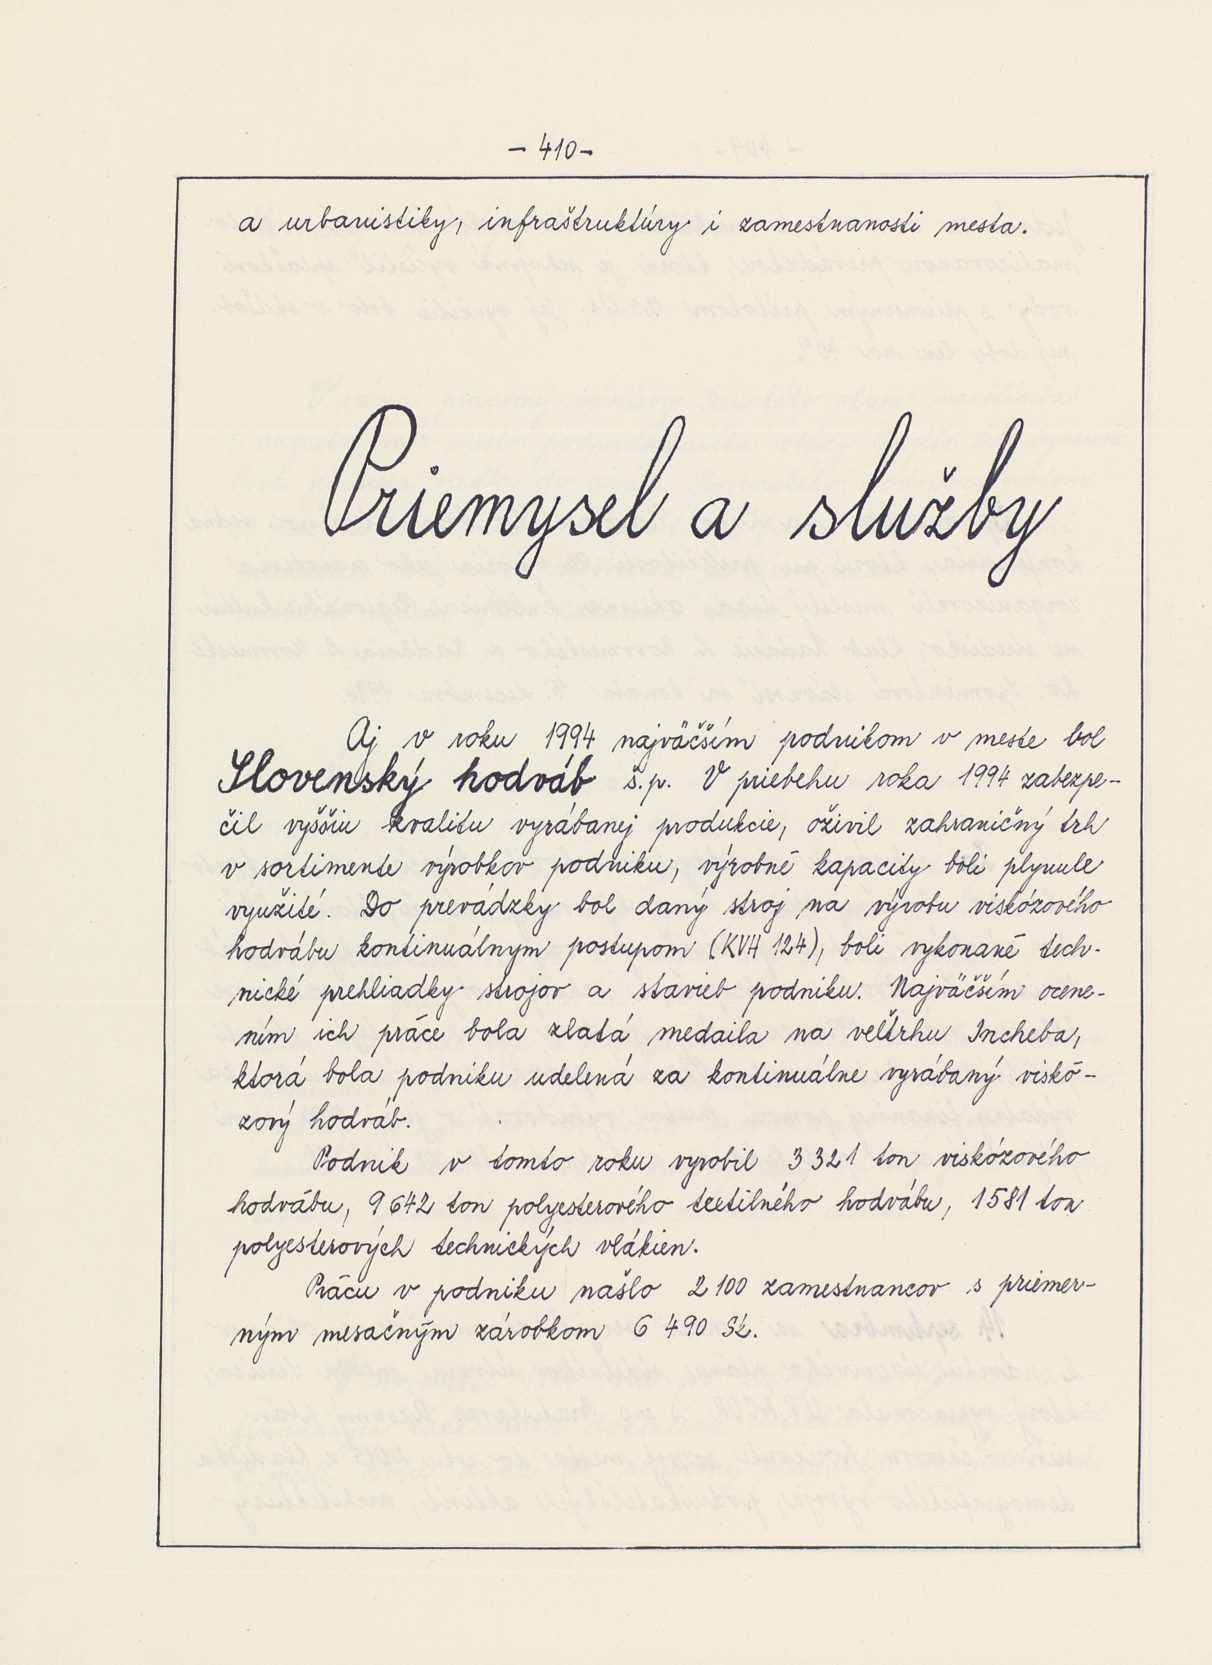 - 410 -
a urbanistiky, infraštruktúry i zamestnanosti mesta.
Priemysel a služby
Aj v roku 1994 najväčším podnikom v meste bol
Slovenský hodváb š.p. V priebehu roka 1994 zabezpe-
čil vyššiu kvalitu vyrábanej produkcie, oživil zahraničný trh
v sortimente výrobkov podniku, výrobné kapacity boli plynule
využité. Do prevádzky bol daný stroj na výrobu viskózového
hodvábu kontinuálnym postupom (KVH 124), boli vykonané tech-
nické prehliadky strojov a stavieb podniku. Najväčším ocene-
ním ich práce bola zlatá medaila na veľtrhu Incheba,
ktorá bola podniku udelená za kontinuálne vyrábaný viskó-
zový hodváb.
Podnik v tomto roku vyrobil 3 321 ton viskózového
hodvábu, 9 642 ton polyesterového textilného hodvábu, 1 581 ton
polyesterových technických vlákien.
Prácu v podniku našlo 2 100 zamestnancov s priemer-
ným mesačným zárobkom 6 490 Sk.